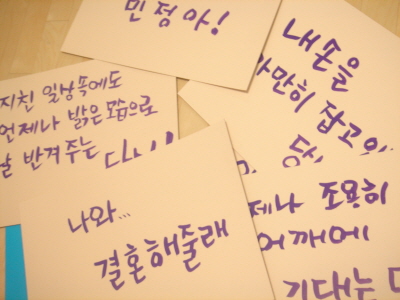 민정아!
지친 일상속에도
언제나 밝은 모습으로
날 반겨주는
내 손을
가만히 잡고
나와...
결혼해줄래
조용히
어깨에
기대는